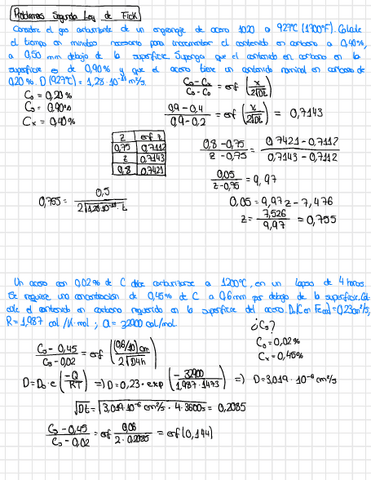 Problemas Segunda Ley de Fick
Considere el gas carburante de un engranaje de acero 1020 a 927ºC (1700ºF). Calcule
el tiempo en minutos necesario para incrementar el contenido en carbono a 0,40%,
a 0,50 mm debajo de la superficie. Suponga que el contenido en carbono en la
superficie es de 0,90% y que el acero tiene un contenido nominal en carbono de
0,20%. D (927ºC) = 1,28·10⁻¹¹ m²/s.
C₀ = 0,20%
Cs = 0,90%
Cx = 0,40%
(Cs - Cx)/(Cs - C₀) = erf (x/(2√Dt))
(0,9 - 0,4)/(0,9 - 0,2) = erf (x/(2√Dt)) = 0,7143
z erf z
0,75 0,7112
z 0,7143
0,8 0,7421
(0,8 - 0,75)/(z - 0,75) = (0,7421 - 0,7112)/(0,7143 - 0,7112)
0,05/(z - 0,75) = 9,97
0,05 = 9,97z - 7,476
z = 7,526/9,97 = 0,755
0,755 = 0,5/(2√(1,28·10⁻¹¹ · t))
Un acero con 0,02% de C debe carburizarse a 1200ºC, en un lapso de 4 horas.
Se requiere una concentración de 0,45% de C a 0,6 mm por debajo de la superficie. Cal
cule el contenido en carbono requerido en la superficie del acero. D₀(C en Fe α) = 0,23 cm²/s,
R = 1,987 cal/K·mol ; Q = 32900 cal/mol.
¿Cs?
C₀ = 0,02%
Cx = 0,45%
(Cs - 0,45)/(Cs - 0,02) = erf ((0,6/10) cm/(2√D4h))
D = D₀·e(-Q/RT) => D = 0,23·exp(-32900/(1,987·1473)) => D = 3,019·10⁻⁶ cm²/s
√Dt = √(3,019·10⁻⁶ cm²/s · 4·3600s) = 0,2085
(Cs - 0,45)/(Cs - 0,02) = erf 0,06/(2·0,2085) = erf (0,144)